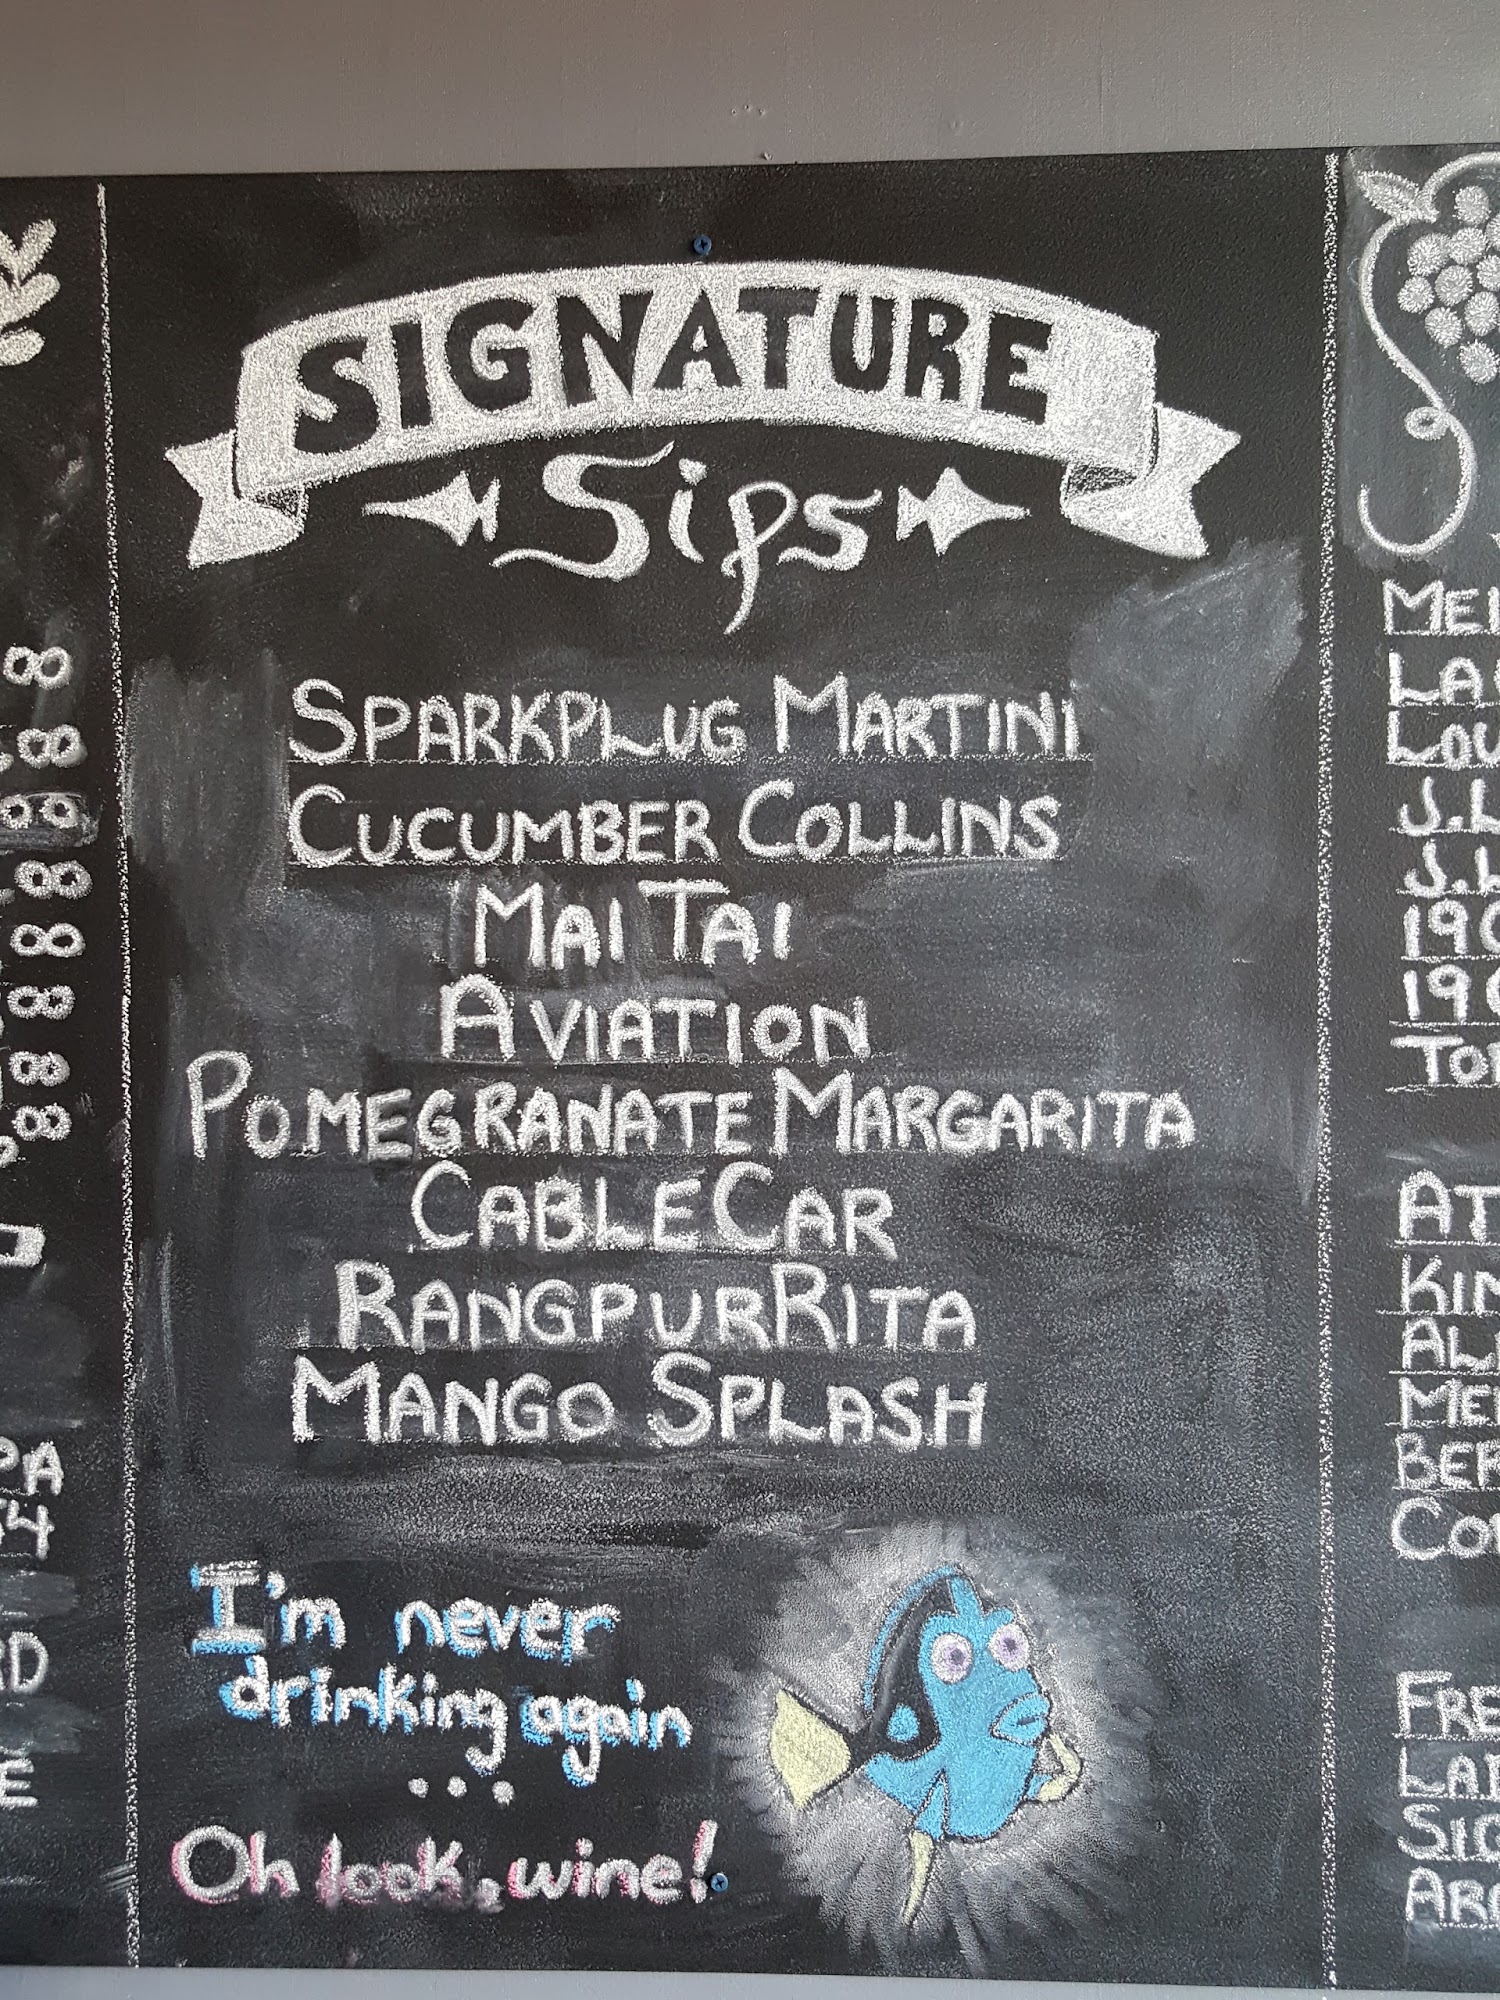 SIGNATURE
Sips
SPARKPLUG MARTINI
CUCUMBER COLLINS
MAI TAI
AVIATION
POMEGRANATE MARGARITA
CABLECAR
RANGPURRITA
MANGO SPLASH
I'm never
drinking again
...
Oh look, wine!
8
8
8
8
8
8
8
8
PA
4
RD
E
MER
LA
LOU
J.L
J.L
19
19
TOR
AT
KIM
AL
ME
BER
CO
FRE
LA
SIG
ARA